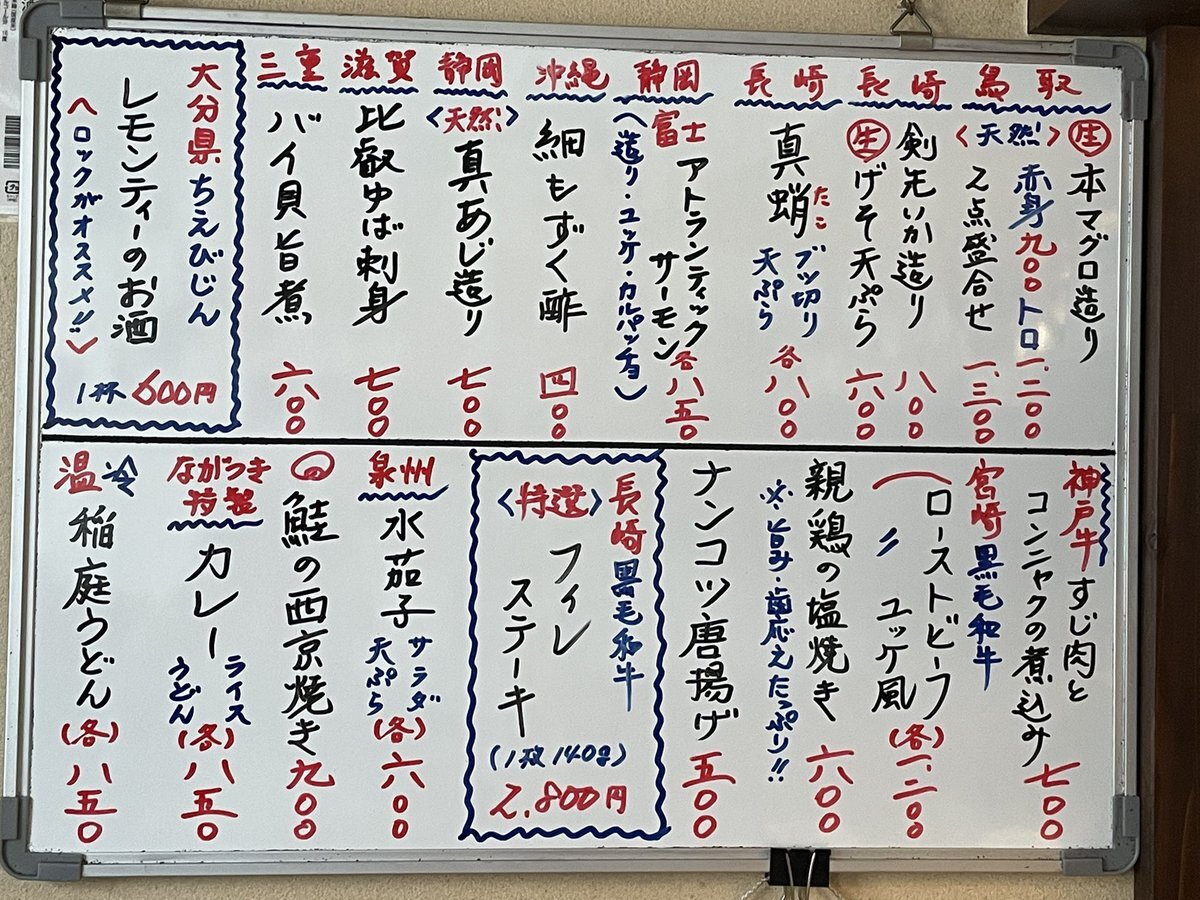 鳥取
生 本マグロ造り
〈天然〉
赤身 九〇〇 トロ 一、二〇〇
2点盛合せ 一、三〇〇
長崎
剣先いか造り 八〇〇
生 げそ天ぷら 六〇〇
長崎
真蛸 たこ
ブツ切り
天ぷら
各八〇〇
静岡
富士
アトランティック
サーモン
各八五〇
(造り・ユッケ・カルパッチョ)
沖縄
細もずく酢 四〇〇
静岡
〈天然〉
真あじ造り 七〇〇
滋賀
比叡ゆば刺身 七〇〇
三重
バイ貝旨煮 六〇〇
大分県 ちえびじん
レモンティーのお酒
〈ロックがオススメ!!〉
1杯 600円
神戸牛すじ肉と
コンニャクの煮込み 七〇〇
宮崎 黒毛和牛
ローストビーフ
〃 ユッケ風
(各)一、二〇〇
親鶏の塩焼き 六〇〇
※旨み・歯応えたっぷり!!
ナンコツ唐揚げ 五〇〇
長崎 黒毛和牛
〈特選〉
フィレ
ステーキ
(1枚140g)
2,800円
泉州
水茄子
サラダ
天ぷら
(各)六〇〇
鮭の西京焼き 九〇〇
ながつき
特製
カレー
ライス
うどん
(各)八五〇
温 冷
稲庭うどん
(各)八五〇